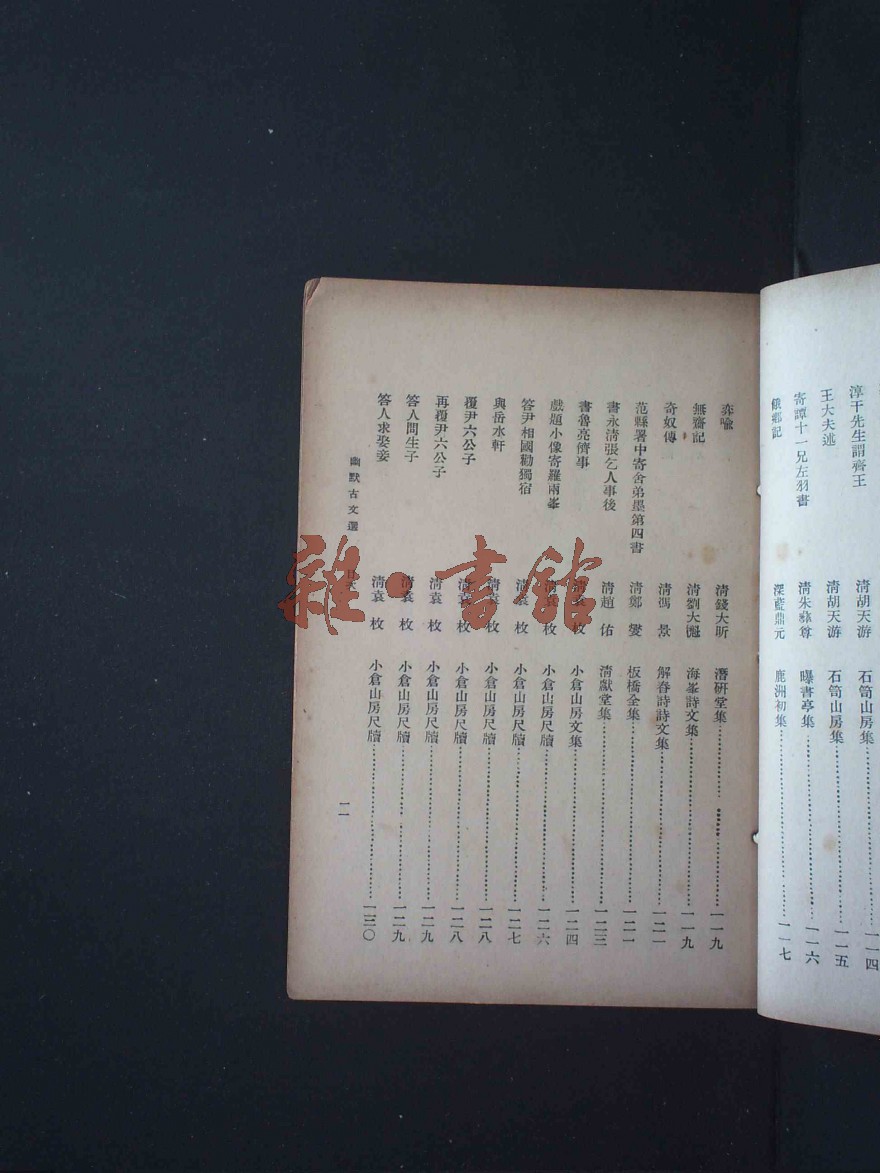 淳于先生謂齊王 清胡天游 石笥山房集 一一四
王大夫述 清胡天游 石笥山房集 一一五
寄譚十一兄左羽書 清朱彝尊 曝書亭集 一一六
餓鄉記 深藍鼎元 鹿洲初集 一一七
弈喩 清錢大昕 潛硏堂集 一一九
無齋記 清劉大櫆 海峯詩文集 一一九
奇奴傳 清馮景 解舂詩詩文集 一二一
范縣署中寄舍弟墨第四書 清鄭燮 板橋全集 一二一
書永淸張乞人事後 清趙佑 淸獻堂集 一二三
書魯亮儕事 清袁枚 小倉山房文集 一二四
戲題小像寄羅兩峯 清袁枚 小倉山房尺牘 一二六
答尹相國勸獨宿 清袁枚 小倉山房尺牘 一二七
與岳水軒 清袁枚 小倉山房尺牘 一二八
覆尹六公子 清袁枚 小倉山房尺牘 一二八
再覆尹六公子 清袁枚 小倉山房尺牘 一二九
答人問生子 清袁枚 小倉山房尺牘 一二九
答人求娶妾 清袁枚 小倉山房尺牘 一三〇
幽默古文選 目次 一一
雜·書館